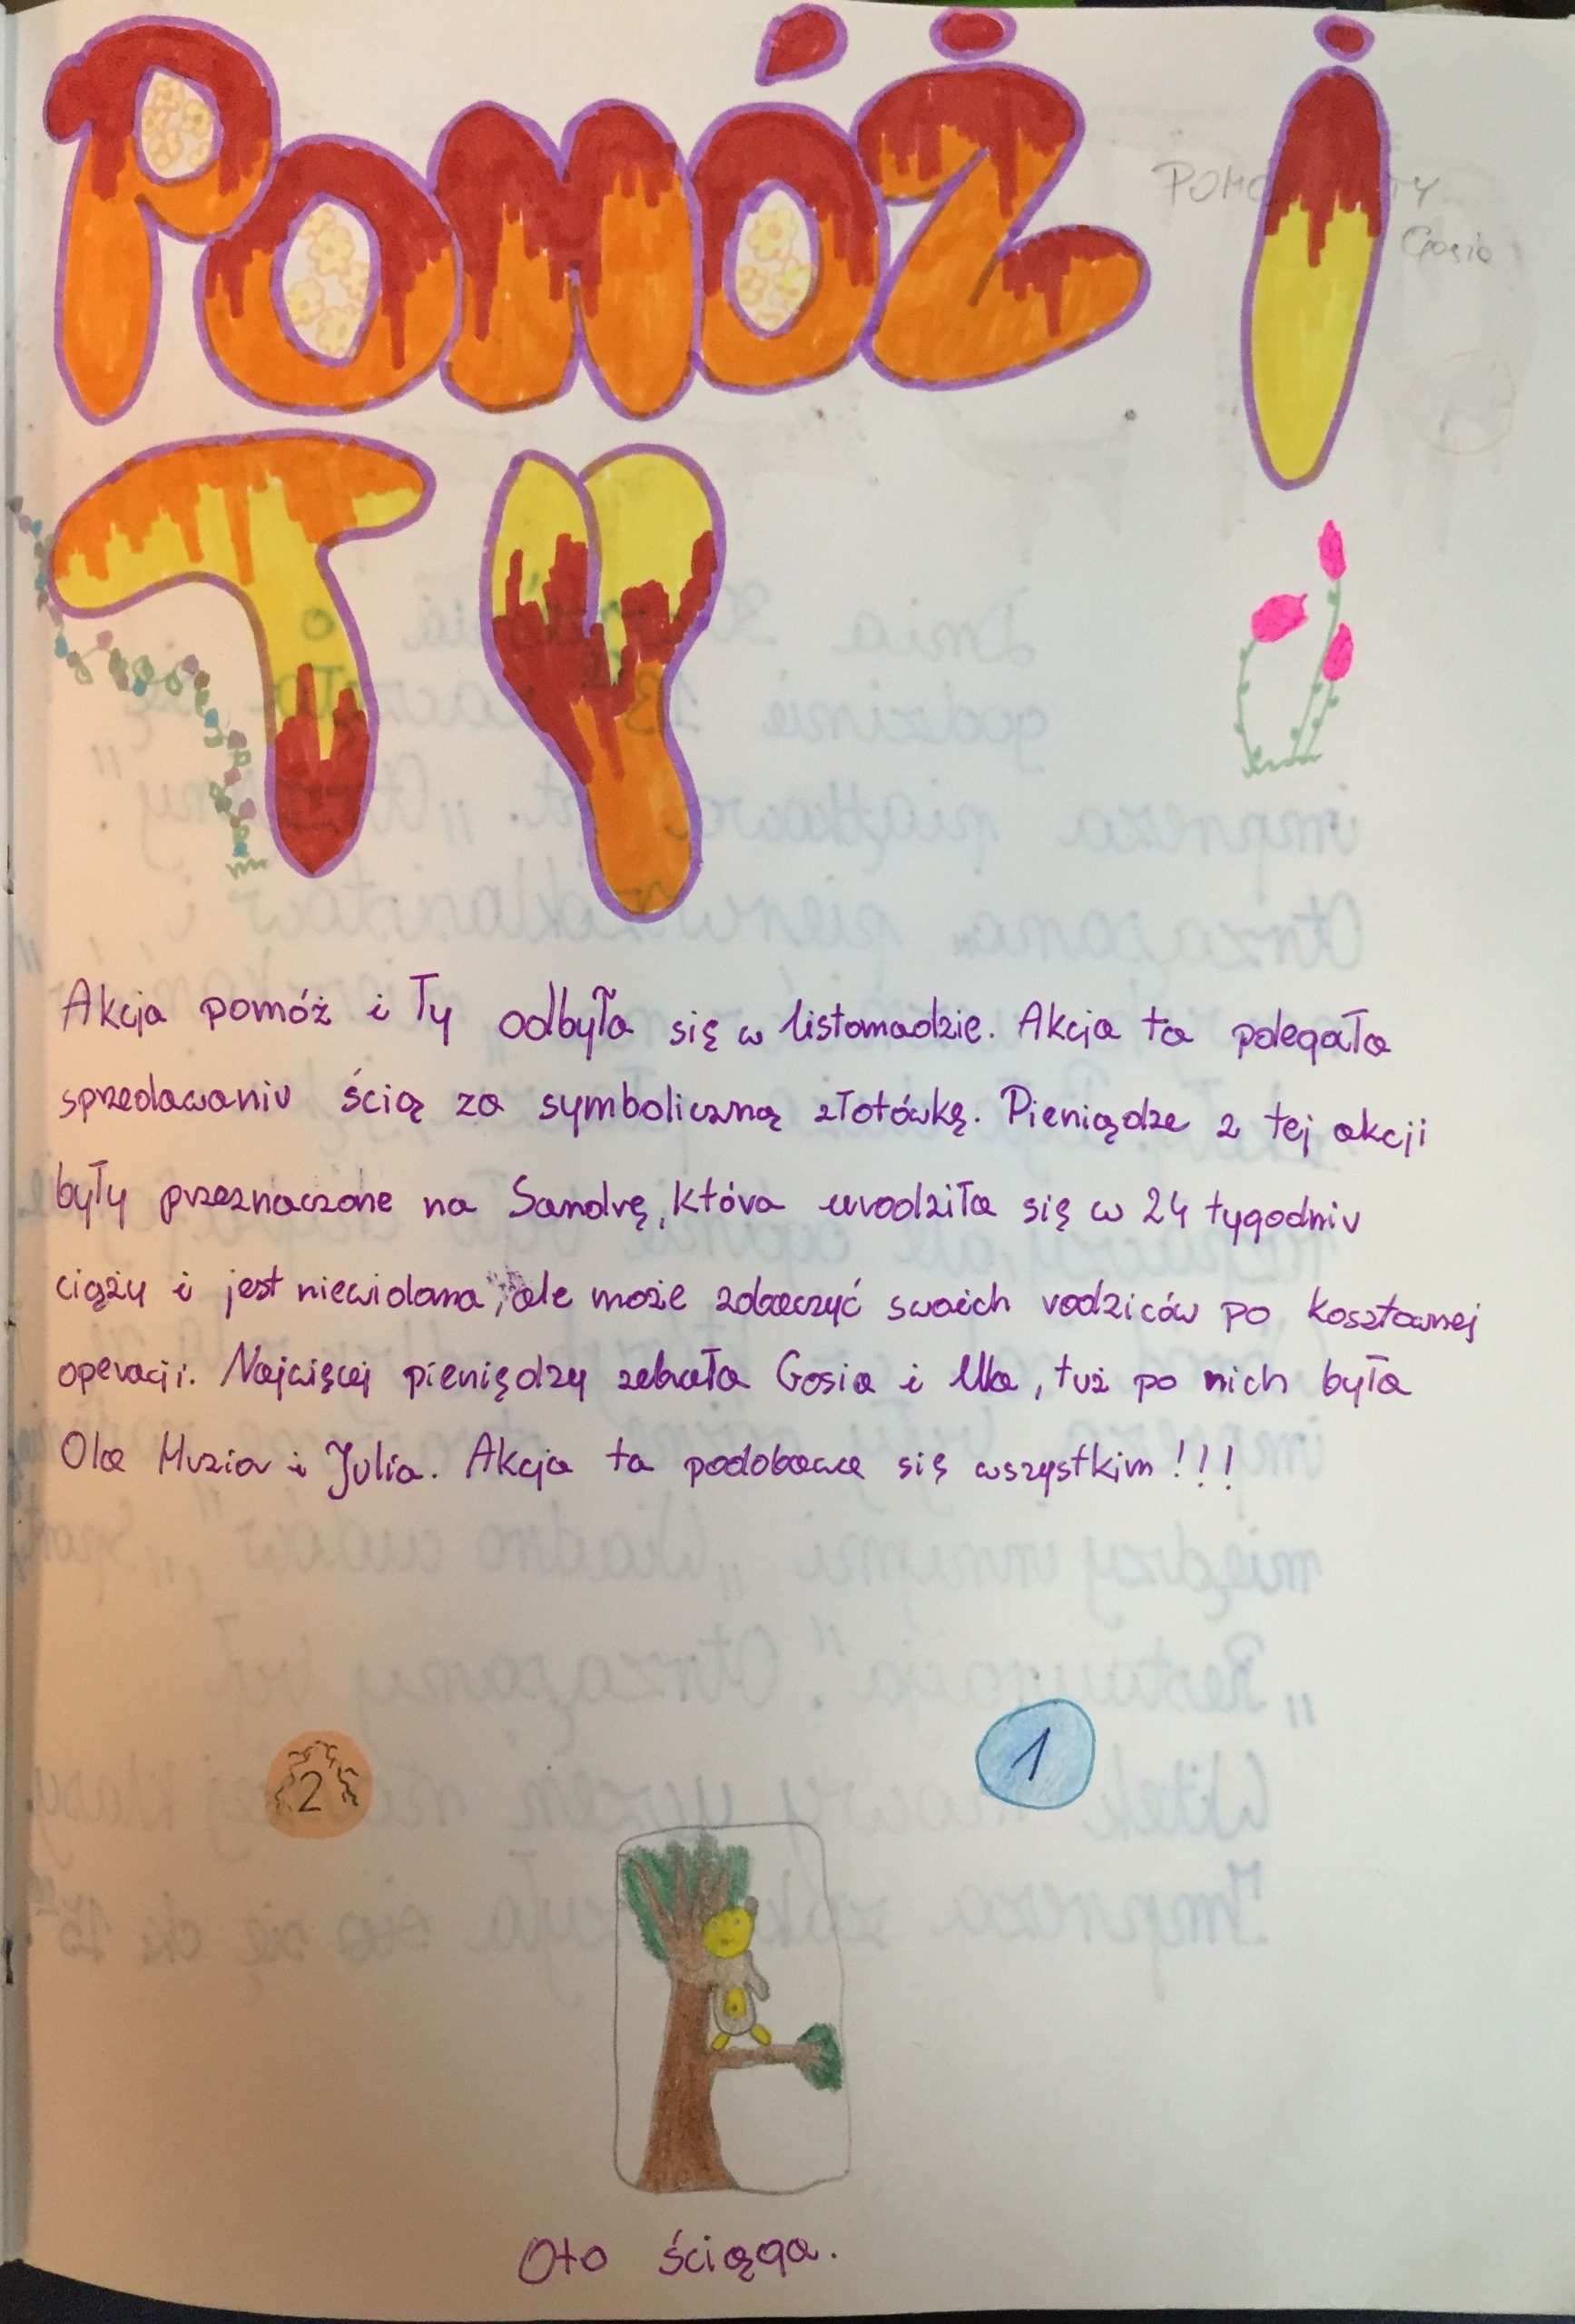 POMÓŻ i
TY
Gosia
Akcja pomóż i Ty odbyła się w listomadzie. Akcja ta polegała
sprzedawaniu ściąg za symboliczną złotówkę. Pieniądze z tej akcji
były przeznaczone na Sandrę, która urodziła się w 24 tygodniu
ciąży i jest niewidoma, ale może zobaczyć swoich rodziców po kosztownej
operacji. Najwięcej pieniędzy zebrała Gosia i Ula, tuż po nich była
Ola Muzia i Julia. Akcja ta podobała się wszystkim!!!
2
1
Oto ściąga.